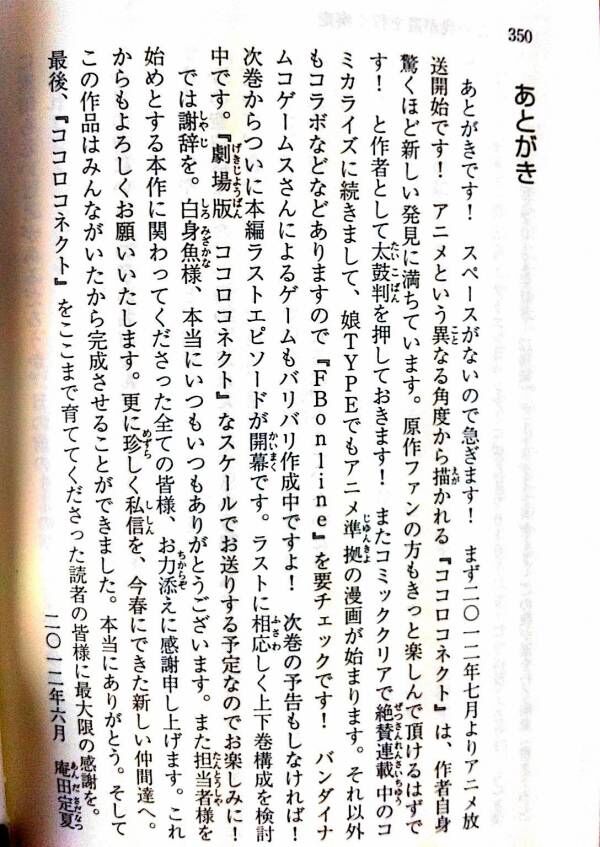 350
あとがき
あとがきです！　スペースがないので急ぎます！　まず二〇一二年七月よりアニメ放
送開始です！　アニメという異なる角度から描かれる『ココロコネクト』は、作者自身
驚くほど新しい発見に満ちています。原作ファンの方もきっと楽しんで頂けるはずで
す！　と作者として太鼓判を押しておきます！　またコミッククリアで絶賛連載中のコ
ミカライズに続きまして、娘TYPEでもアニメ準拠の漫画が始まります。それ以外
もコラボなどなどありますので『FBonline』を要チェックです！　バンダイナ
ムコゲームスさんによるゲームもバリバリ作成中ですよ！　次巻の予告もしなければ！
次巻からついに本編ラストエピソードが開幕です。ラストに相応しく上下巻構成を検討
中です。『劇場版　ココロコネクト』なスケールでお送りする予定なのでお楽しみに！
では謝辞を。白身魚様、本当にいつもいつもありがとうございます。また担当者様を
始めとする本作に関わってくださった全ての皆様、お力添えに感謝申し上げます。これ
からもよろしくお願いいたします。更に珍しく私信を、今春にできた新しい仲間達へ。
この作品はみんながいたから完成させることができました。本当にありがとう。そして
最後、『ココロコネクト』をここまで育ててくださった読者の皆様に最大限の感謝を。
二〇一二年六月　庵田定夏